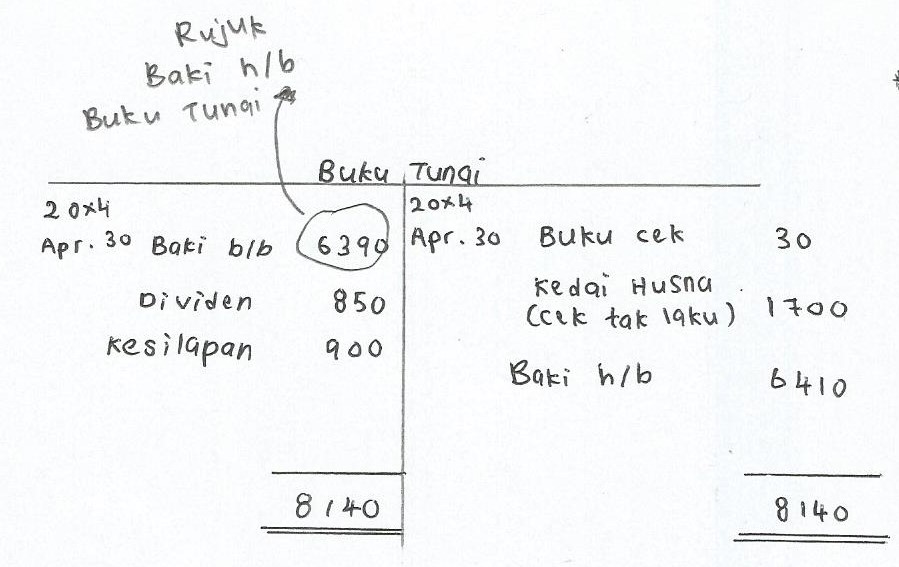 Rujuk
Baki h/b
Buku Tunai
Buku Tunai
20x4
Apr. 30 Baki b/b 6390
Dividen 850
Kesilapan 900
8140
20x4
Apr. 30 Buku cek 30
Kedai Husna
(cek tak laku) 1700
Baki h/b 6410
8140